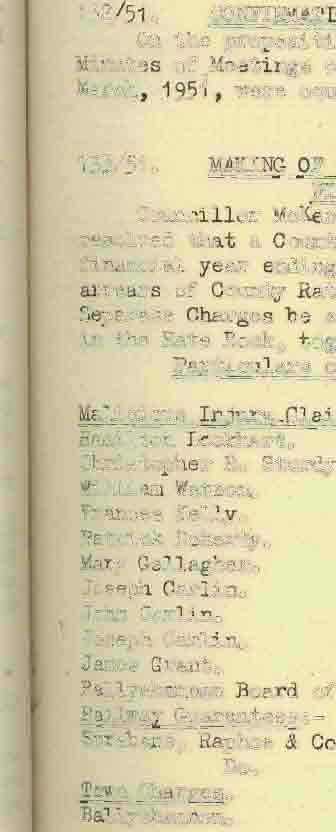 132/51. CONFIRMATI
On the propositi
Minutes of Meetings
March, 1951, were
133/51. MAKING OF
Councillor McKen
resolved that a Count
financial year ending
arrears of County Rat
Separate Charges be
in the Rate Book, tog
Particulars
Malicious Injury Clai
Hamilton Lockhart.
Christopher B. Sturdy
William Watson.
Frances Kelly.
Patrick Doherty.
Mary Gallagher.
Joseph Carlin.
John Carlin.
Joseph Carlin.
James Grant.
Ballyshannon Board of
Railway Guarantees-
Strabane, Raphoe & Co
Do.
Town Charges.
Ballyshannon.